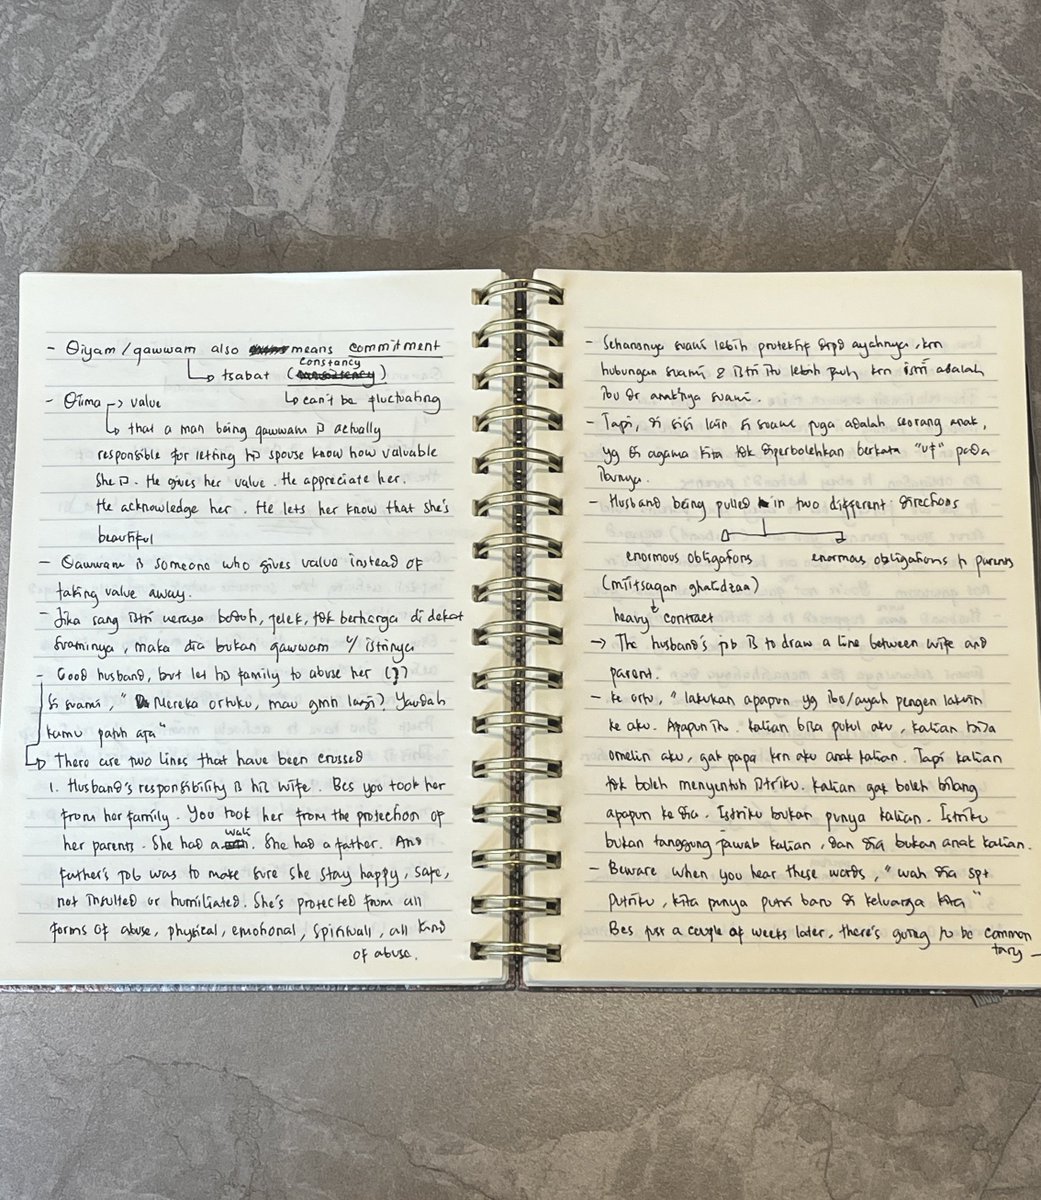 - Qiyam/qawwam also means commitment
tsabat (constancy)
can't be fluctuating
- Qiima → value
that a man being qawwam is actually
responsible for letting his spouse know how valuable
she is. He gives her value. He appreciate her.
He acknowledge her. He lets her know that she's
beautiful
- Qawwam is someone who gives value instead of
taking value away.
- Jika sang istri merasa bodoh, jelek, tdk berharga di dekat
suaminya, maka dia bukan qawwam u/ istrinya
- Good husband, but let his family to abuse her (?)
si suami, " Mereka ortuku, mau gmn lagi? Yaudah
kamu patuh aja"
There are two lines that have been crossed
1. Husband's responsibility is his wife. Bcs you took her
from her family. You took her from the protection of
her parents. She had a wali. She had a father. And
father's job was to make sure she stay happy, safe,
not insulted or humiliated. She's protected from all
forms of abuse, physical, emotional, spirituall, all kind
of abuse.
- Seharusnya suami lebih protektif drpd ayahnya, krn
hubungan suami & istri itu lebih jauh krn istri adalah
ibu dr anak"nya suami.
- Tapi, di sisi lain si suami juga adalah seorang anak,
yg di agama kita tdk diperbolehkan berkata "uf" pada
ibunya.
- Husband being pulled in two different directions
enormous obligations enormous obligations to parents
(miitsaqan ghalidzaa)
heavy contract
→ The husband's job is to draw a line between wife and
parent.
- ke ortu, " lakukan apapun yg ibu/ayah pengen lakuin
ke aku. Apapun itu. kalian bisa pukul aku, kalian bisa
omelin aku, gak papa krn aku anak kalian. Tapi kalian
tdk boleh menyentuh istriku. kalian gak boleh bilang
apapun ke dia. Istriku bukan punya kalian. Istriku
bukan tanggung jawab kalian, dan dia bukan anak kalian.
- Beware when you hear these words, " wah dia spt
putriku, kita punya putri baru di keluarga kita"
Bcs just a couple of weeks later, there's going to be commen
tary -